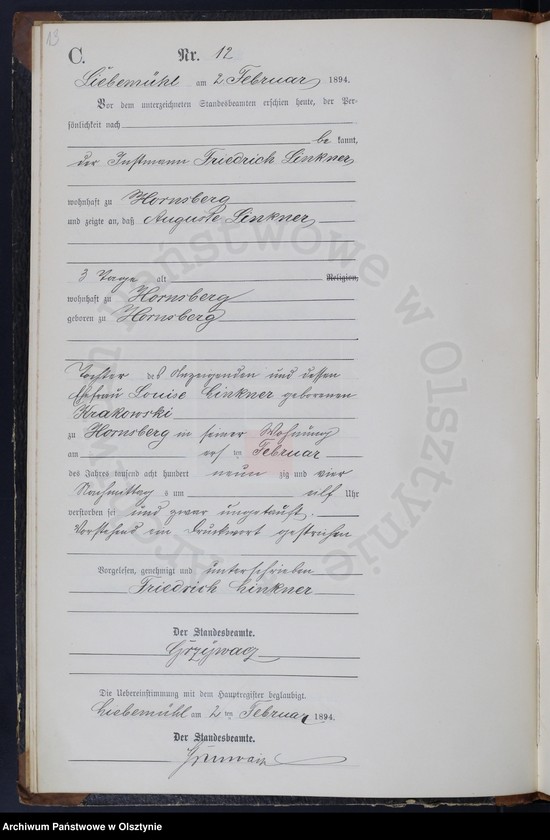 13
C. Nr. 12
Liebemühl am 2 Februar 1894.
Vor dem unterzeichneten Standesbeamten erschien heute, der Per-
sönlichkeit nach
be kannt,
der Instmann Friedrich Linkner
wohnhaft zu Hornsberg
und zeigte an, daß Auguste Linkner
3 Tage alt Religion,
wohnhaft zu Hornsberg
geboren zu Hornsberg
Tochter des Anzeigenden und dessen
Ehefrau Louise Linkner geborenen
Krakowski
zu Hornsberg in seiner Wohnung
am ersten Februar
des Jahres tausend acht hundert neun zig und vier
Nachmittag s um elf Uhr
verstorben sei und zwar ungetauft.
Vorstehend ein Druckwort gestrichen
Vorgelesen, genehmigt und unterschrieben
Friedrich Linkner
Der Standesbeamte.
Grzywacz
Die Uebereinstimmung mit dem Hauptregister beglaubigt.
Liebemühl am 2 ten Februar 1894.
Der Standesbeamte.
Archiwum Państwowe w Olsztynie
Archiwum Państwowe w Olsztynie